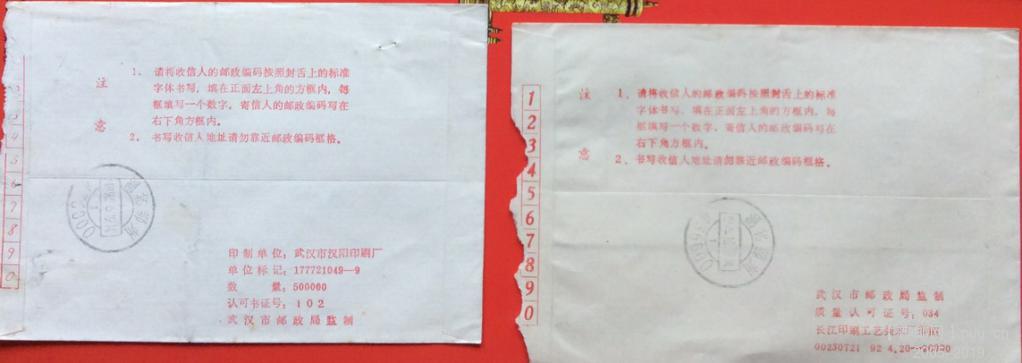 注意
1、请将收信人的邮政编码按照封舌上的标准
字体书写，填在正面左上角的方框内，每
框填写一个数字。寄信人的邮政编码写在
右下角方框内。
2、书写收信人地址请勿靠近邮政编码框格。
5
6
7
8
9
0
印制单位：武汉市汉阳印刷厂
单位标记：177721049—9
数 量：500000
认可书证号：102
武汉市邮政局监制
注意
1、请将收信人的邮政编码按照封舌上的标准
字体书写，填在正面左上角的方框内，每
框填写一个数字，寄信人的邮政编码写在
右下角方框内。
2、书写收信人地址请勿靠近邮政编码框格。
1
2
3
4
5
6
7
8
9
0
武汉市邮政局监制
质量认可证号：034
长江印刷工艺
00230721 92 4.20—